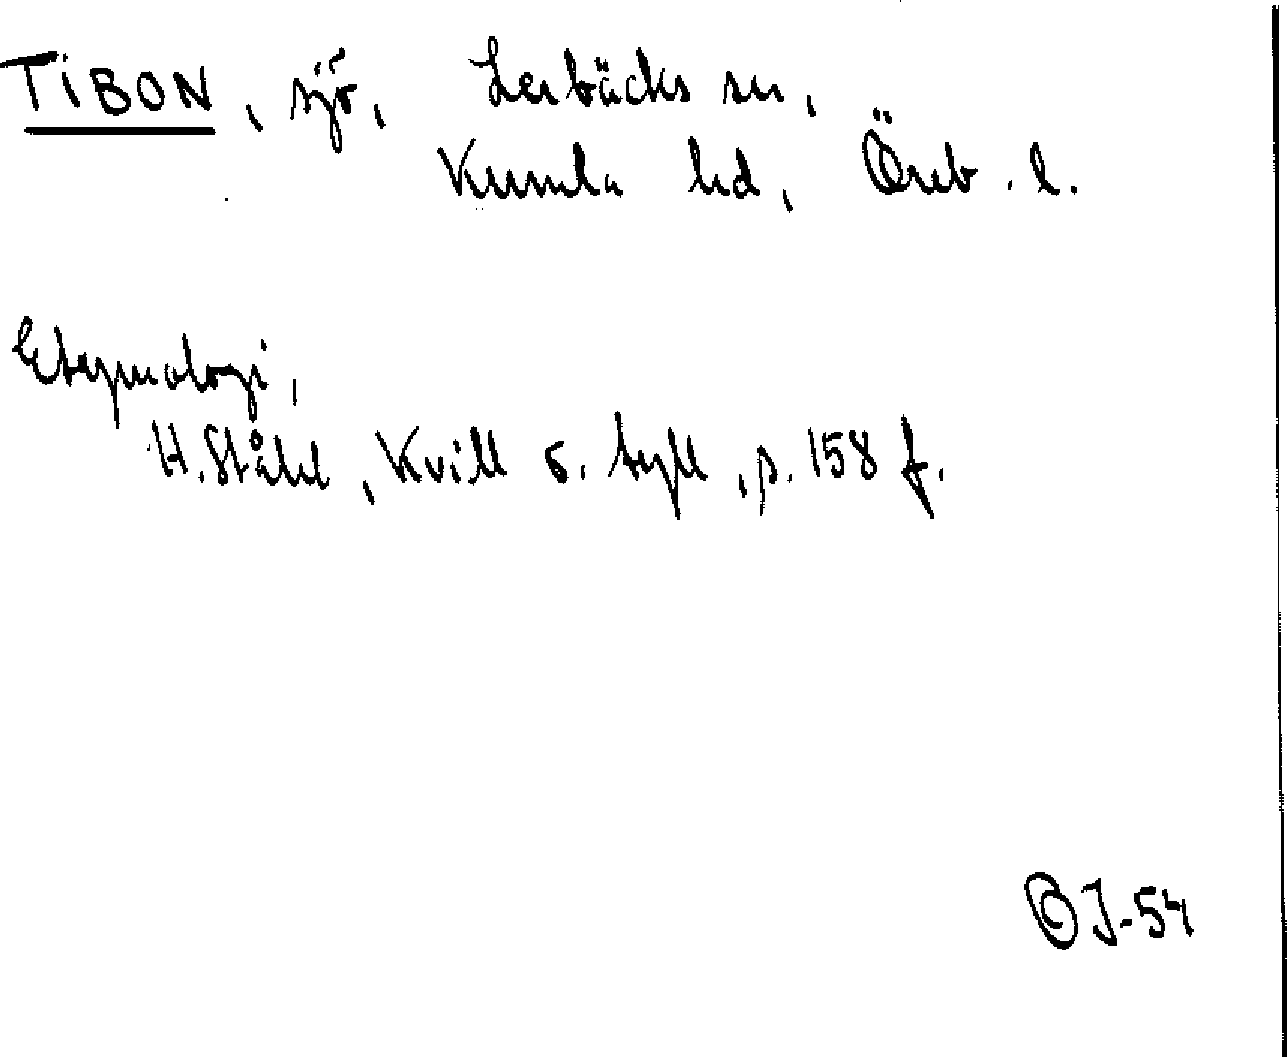 TIBON, sjö, Lerbäcks sn,
Kumla hd, Öreb. l.
Etymologi,
H. Ståhl, Kvill o. tyll, p. 158 f.
J-54